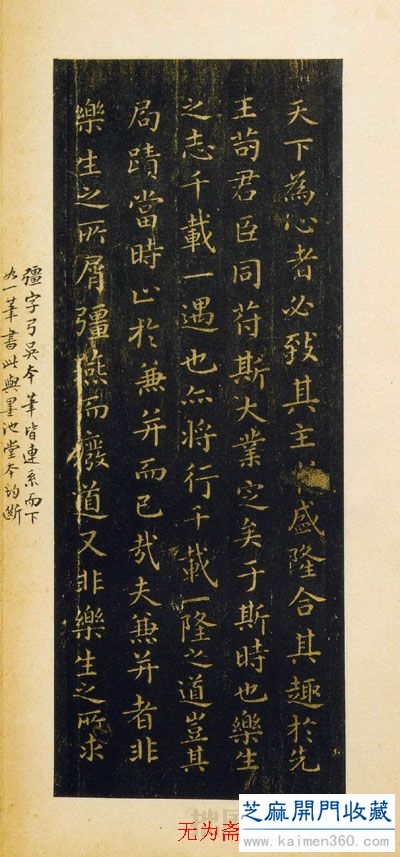 天下為心者必致其主於盛隆合其趣於先
王苟君臣同符斯大業定矣于斯時也樂生
之志千載一遇也亦将行千載一隆之道豈其
局蹟當時止於兼并而已哉夫兼并者非
樂生之所屑彊燕而廢道又非樂生之所求
彊字弓吳本筆皆連系而下
如一筆書此與墨池堂本均断
无为斋
芝麻開門收藏
www.kaimen360.com